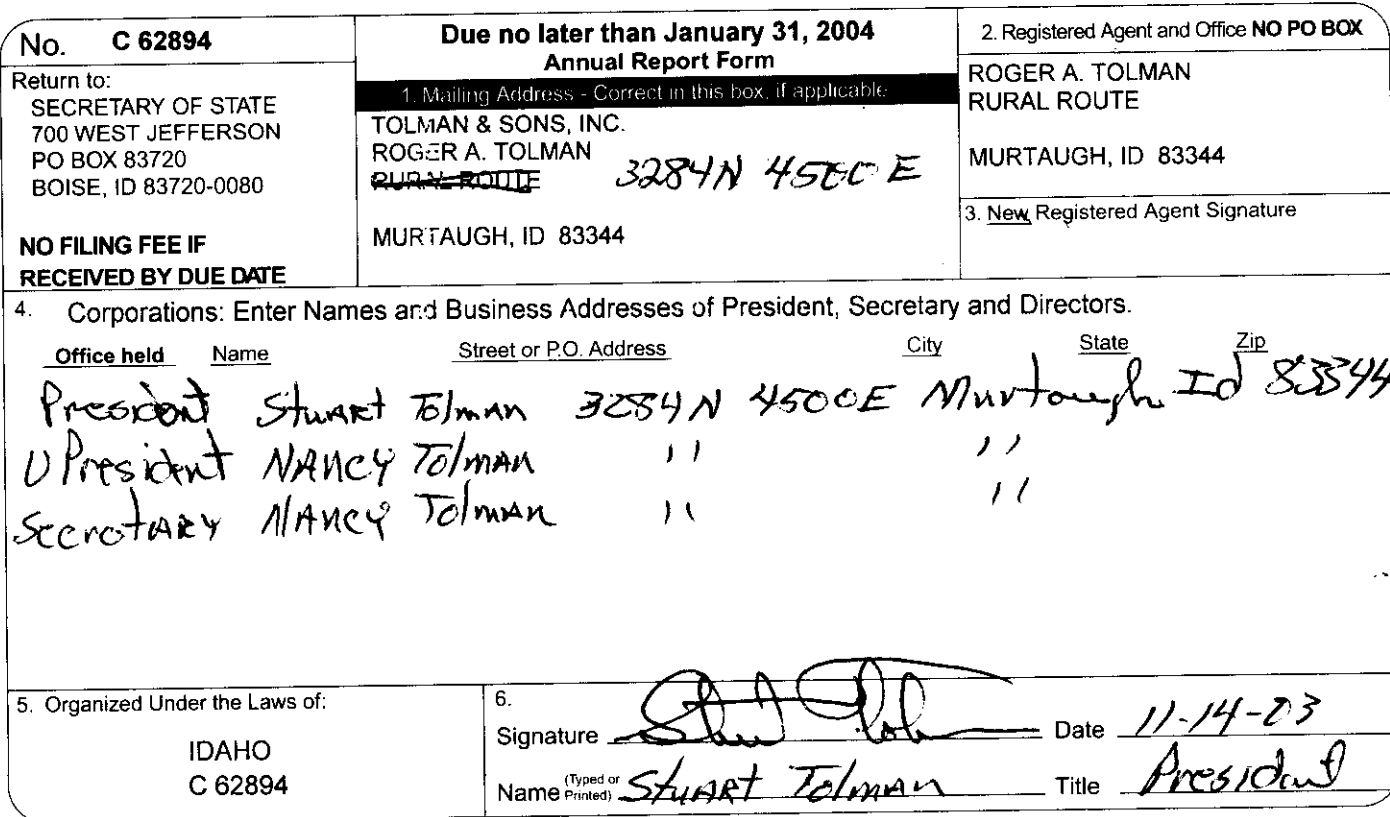 No. C 62894
Return to:
SECRETARY OF STATE
700 WEST JEFFERSON
PO BOX 83720
BOISE, ID 83720-0080
NO FILING FEE IF
RECEIVED BY DUE DATE
Due no later than January 31, 2004
Annual Report Form
1. Mailing Address - Correct in this box, if applicable
TOLMAN & SONS, INC.
ROGER A. TOLMAN
RURAL ROUTE 3284N 4500 E
MURTAUGH, ID 83344
2. Registered Agent and Office NO PO BOX
ROGER A. TOLMAN
RURAL ROUTE
MURTAUGH, ID 83344
3. New Registered Agent Signature
4. Corporations: Enter Names and Business Addresses of President, Secretary and Directors.
Office held Name Street or P.O. Address City State Zip
President Stuart Tolman 3284 N 4500E Murtaugh Id 83344
V President Nancy Tolman " "
Secretary Nancy Tolman " "
5. Organized Under the Laws of:
IDAHO
C 62894
6.
Signature Date 11-14-03
Name (Typed or Printed) Stuart Tolman Title President